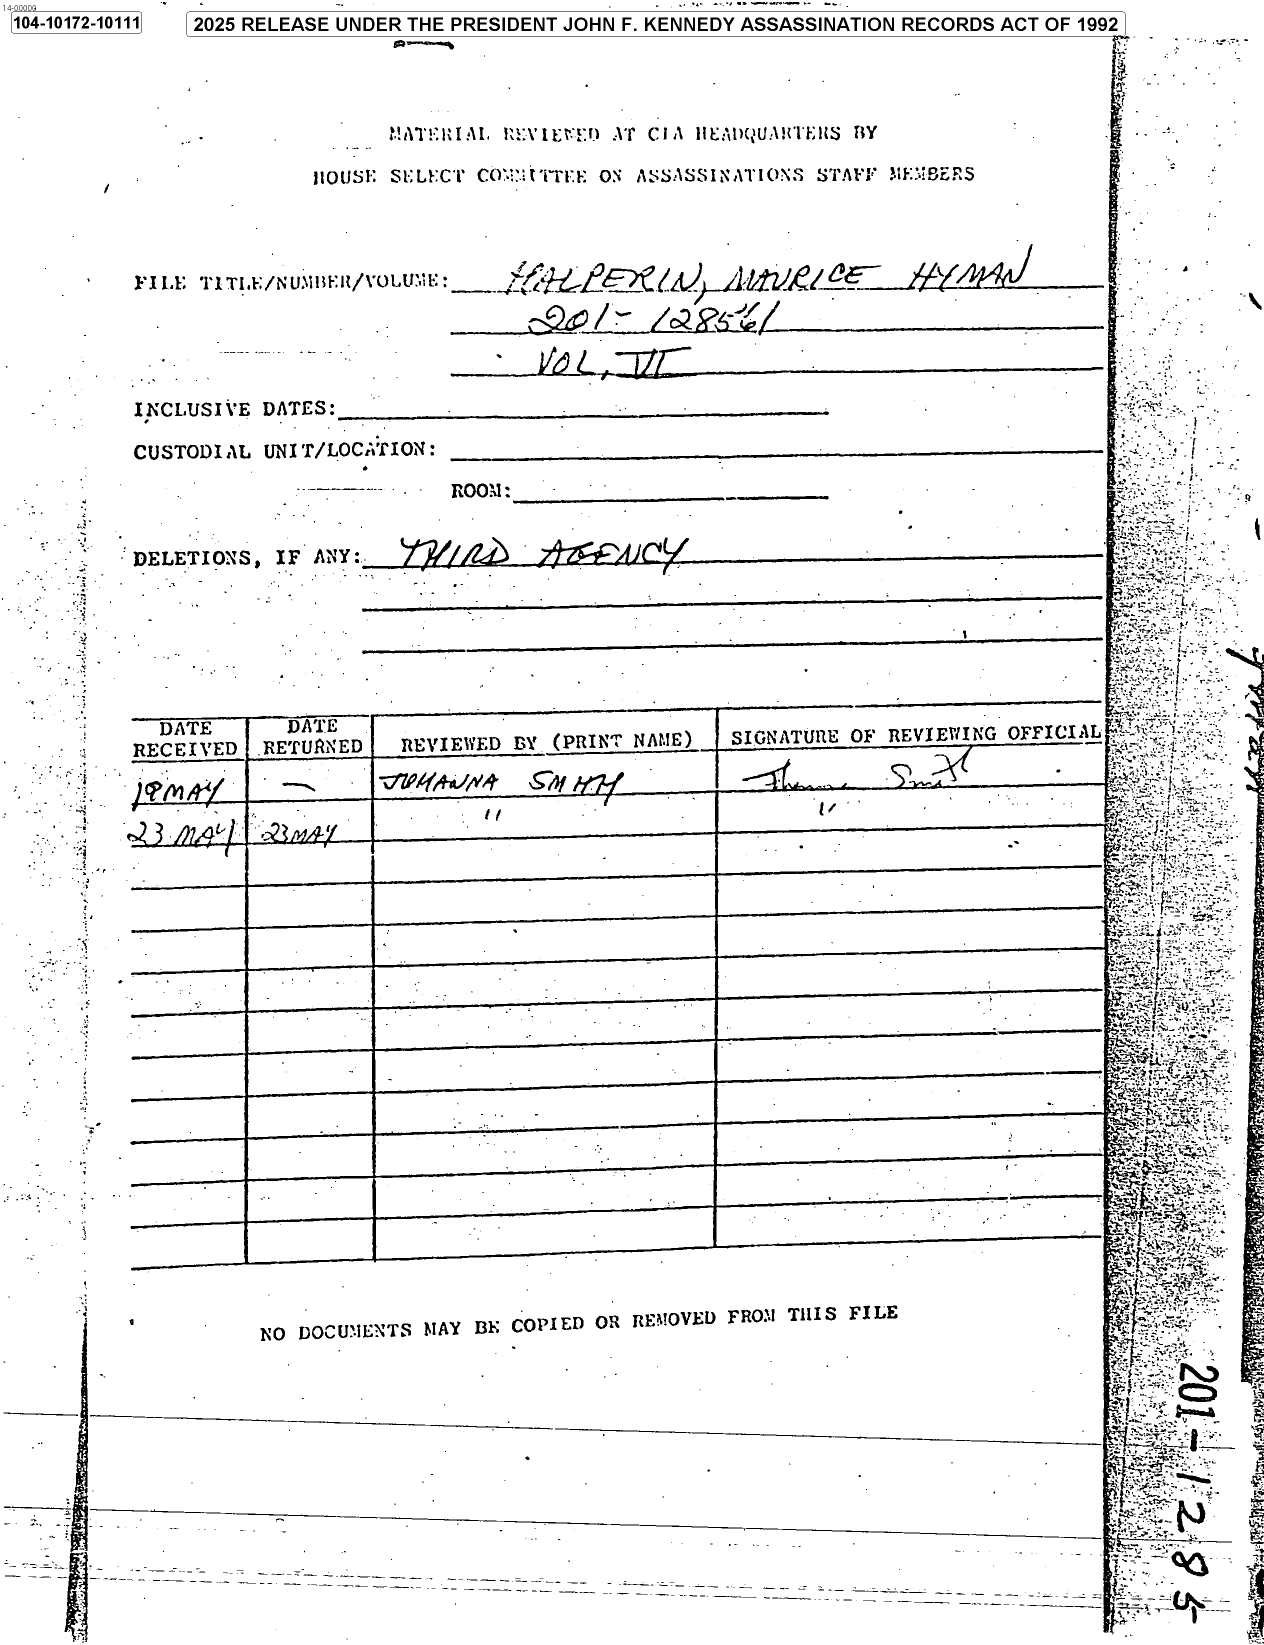 14-00000
104-10172-10111
2025 RELEASE UNDER THE PRESIDENT JOHN F. KENNEDY ASSASSINATION RECORDS ACT OF 1992
MATERIAL REVIEWED AT CIA HEADQUARTERS BY
HOUSE SELECT COMMITTEE ON ASSASSINATIONS STAFF MEMBERS
FILE TITLE/NUMBER/VOLUME: HALPERIN, MAURICE HYMAN
201-128561
VOL, VI
INCLUSIVE DATES:
CUSTODIAL UNIT/LOCATION:
ROOM:
DELETIONS, IF ANY: THIRD AGENCY
DATE RECEIVED DATE RETURNED REVIEWED BY (PRINT NAME) SIGNATURE OF REVIEWING OFFICIAL
19 MAY — JOHANNA SMITH Johanna Smith
23 MAY 23 MAY " "
NO DOCUMENTS MAY BE COPIED OR REMOVED FROM THIS FILE
201-1285